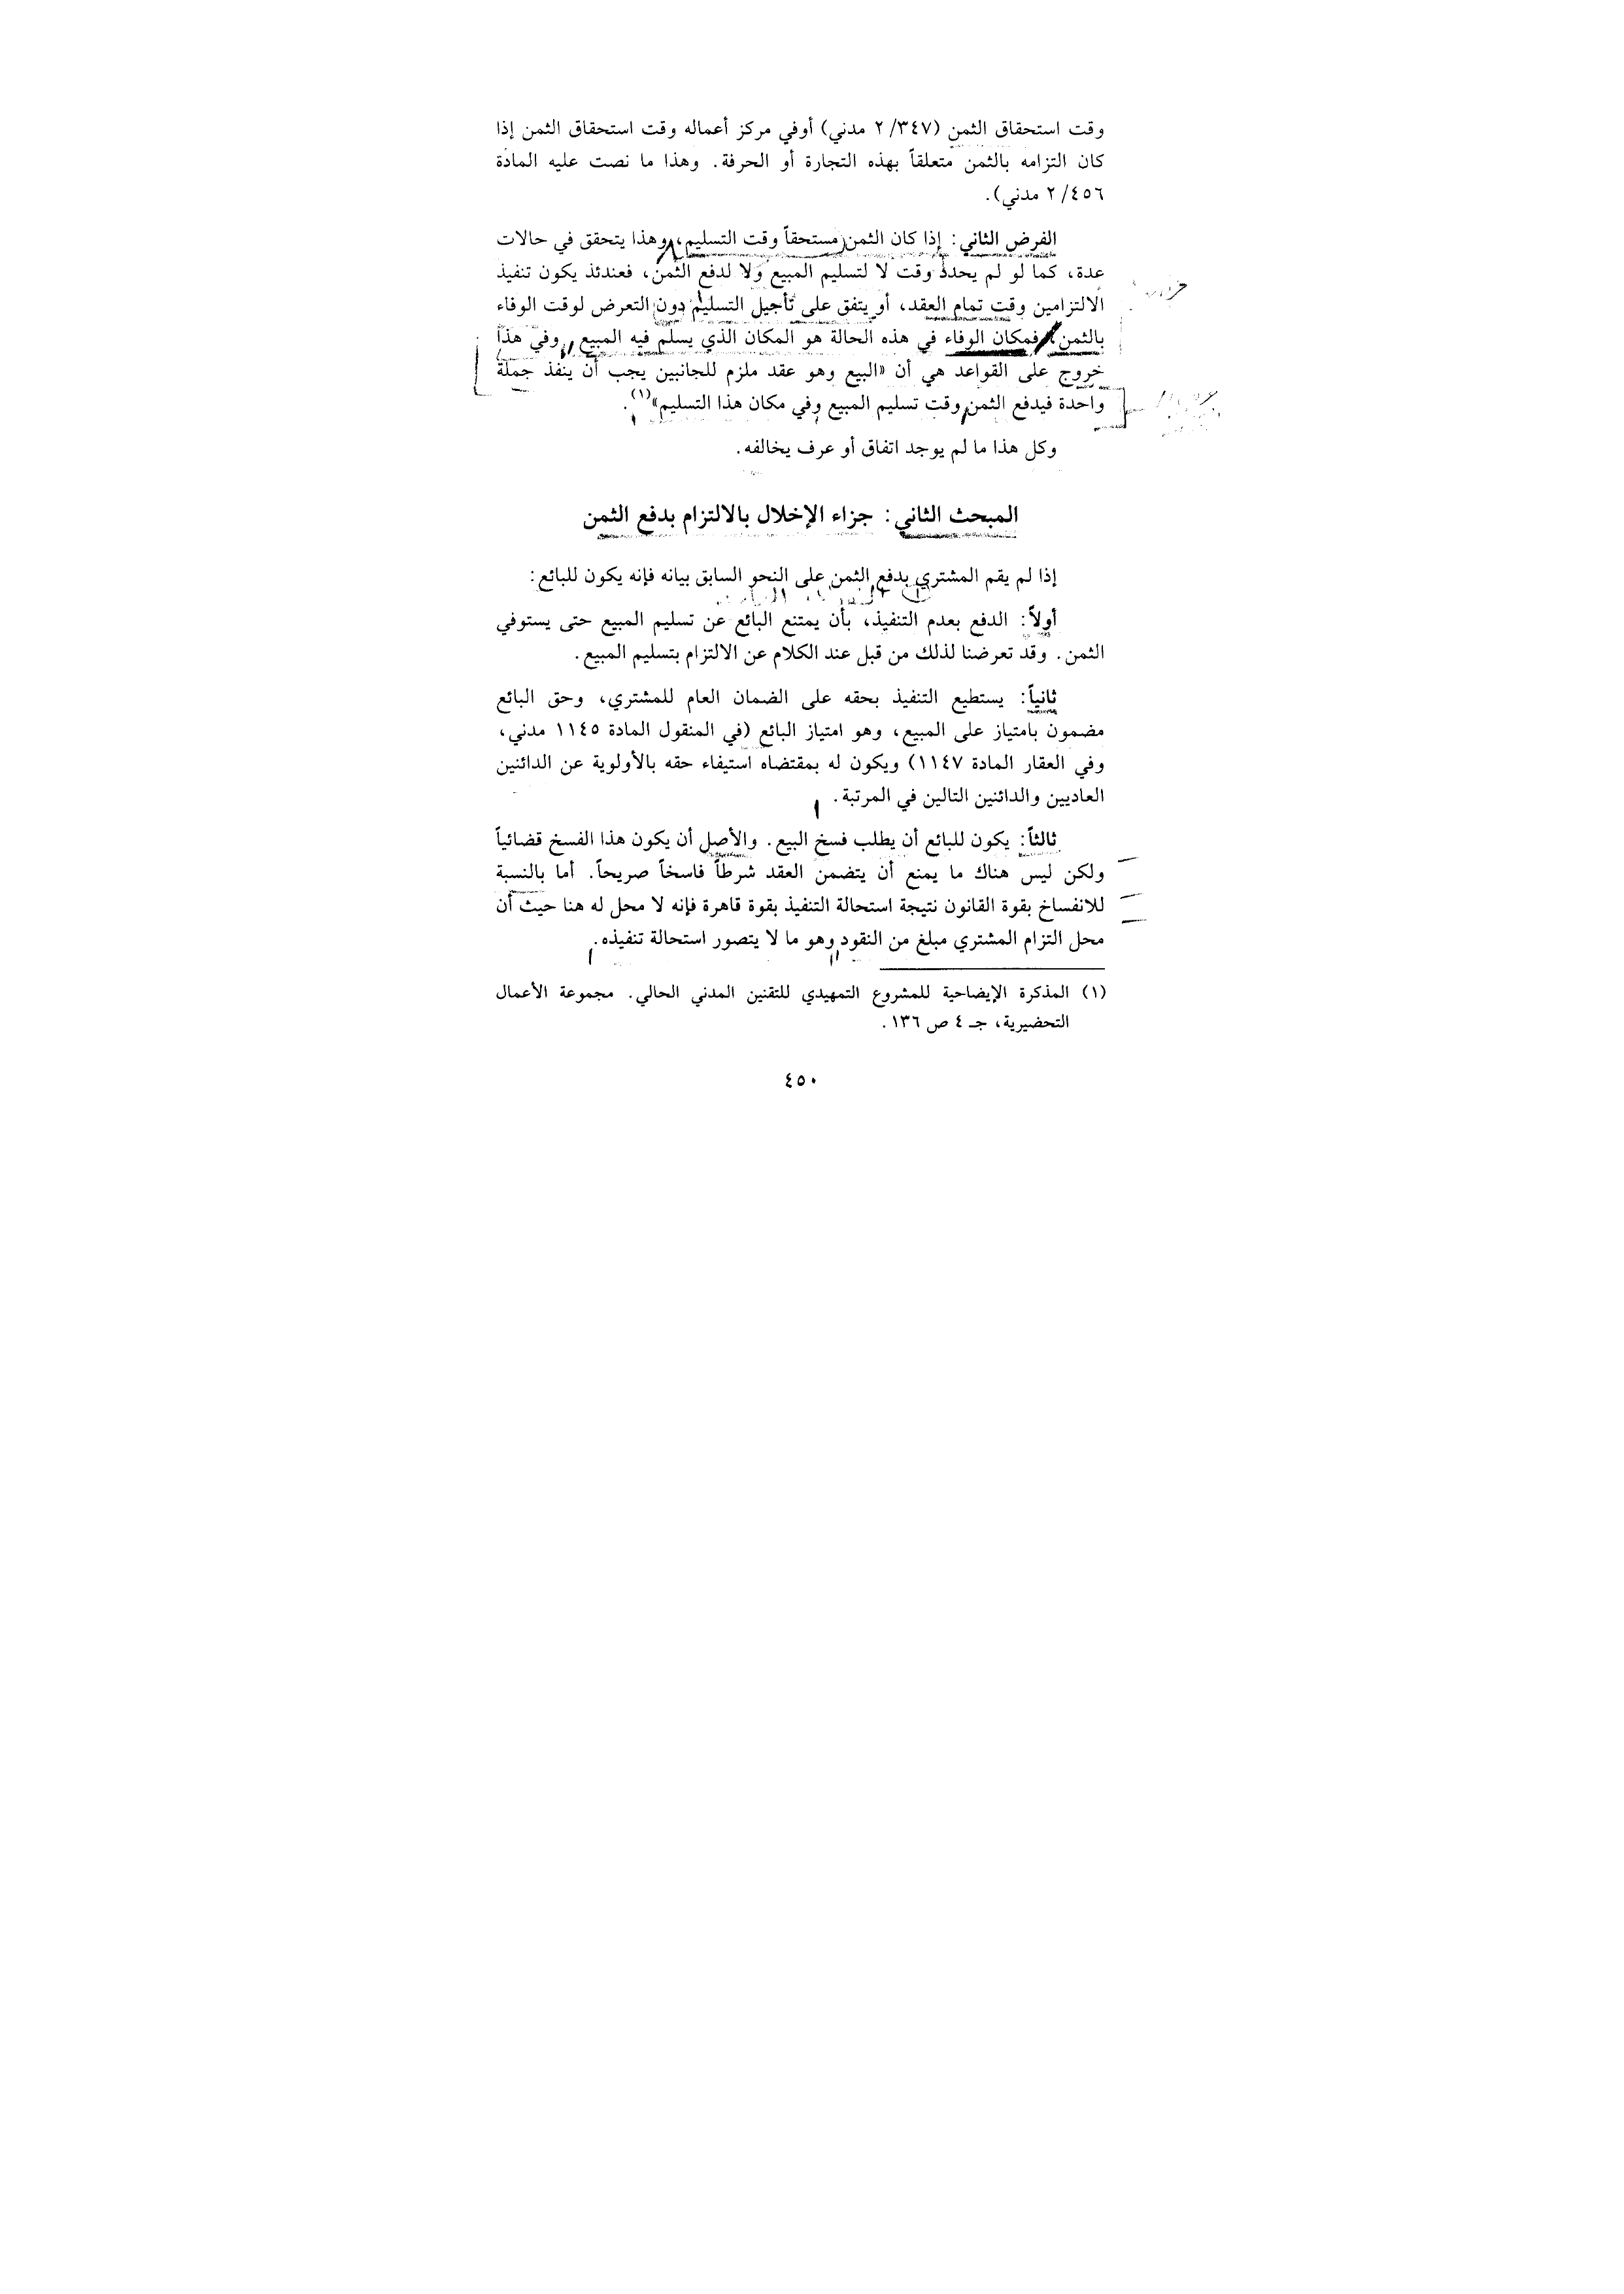 وقت استحقاق الثمن (٣٤٧/ ٢ مدني) أوفي مركز أعماله وقت استحقاق الثمن إذا
كان التزامه بالثمن متعلقاً بهذه التجارة أو الحرفة. وهذا ما نصت عليه المادة
٤٥٦/ ٢ مدني).
الفرض الثاني: إذا كان الثمن مستحقاً وقت التسليم، وهذا يتحقق في حالات
عدة، كما لو لم يحدد وقت لا لتسليم المبيع ولا لدفع الثمن، فعندئذ يكون تنفيذ
الالتزامين وقت تمام العقد، أو يتفق على تأجيل التسليم دون التعرض لوقت الوفاء
بالثمن، فمكان الوفاء في هذه الحالة هو المكان الذي يسلم فيه المبيع، وفي هذا
خروج على القواعد هي أن «البيع وهو عقد ملزم للجانبين يجب أن ينفذ جملة
واحدة فيدفع الثمن وقت تسليم المبيع وفي مكان هذا التسليم»(١).
وكل هذا ما لم يوجد اتفاق أو عرف يخالفه.
المبحث الثاني: جزاء الإخلال بالالتزام بدفع الثمن
إذا لم يقم المشتري بدفع الثمن على النحو السابق بيانه فإنه يكون للبائع:
أولاً: الدفع بعدم التنفيذ، بأن يمتنع البائع عن تسليم المبيع حتى يستوفي
الثمن. وقد تعرضنا لذلك من قبل عند الكلام عن الالتزام بتسليم المبيع.
ثانياً: يستطيع التنفيذ بحقه على الضمان العام للمشتري، وحق البائع
مضمون بامتياز على المبيع، وهو امتياز البائع (في المنقول المادة ١١٤٥ مدني،
وفي العقار المادة ١١٤٧) ويكون له بمقتضاه استيفاء حقه بالأولوية عن الدائنين
العاديين والدائنين التالين في المرتبة.
ثالثاً: يكون للبائع أن يطلب فسخ البيع. والأصل أن يكون هذا الفسخ قضائياً
ولكن ليس هناك ما يمنع أن يتضمن العقد شرطاً فاسخاً صريحاً. أما بالنسبة
للانفساخ بقوة القانون نتيجة استحالة التنفيذ بقوة قاهرة فإنه لا محل له هنا حيث أن
محل التزام المشتري مبلغ من النقود وهو ما لا يتصور استحالة تنفيذه.
(١) المذكرة الإيضاحية للمشروع التمهيدي للتقنين المدني الحالي. مجموعة الأعمال
التحضيرية، جـ ٤ ص ١٣٦.
٤٥٠